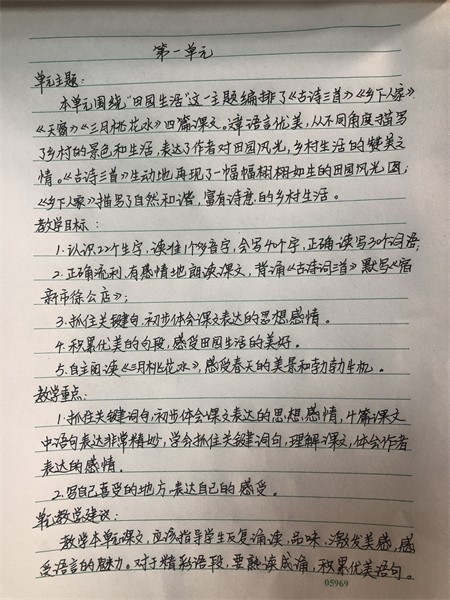 第一单元
单元主题:
本单元围绕“田园生活”这一主题编排了《古诗三首》《乡下人家》
《天窗》《三月桃花水》四篇课文。课语言优美,从不同角度描写
了乡村的景色和生活,表达了作者对田园风光,乡村生活的赞美之
情。《古诗三首》生动地再现了一幅幅栩栩如生的田园风光图;
《乡下人家》描写了自然和谐,富有诗意的乡村生活。
教学目标:
1.认识22个生字,读准1个多音字,会写40个字,正确读写30个词语;
2.正确流利,有感情地朗读课文,背诵《古诗词三首》默写《宿
新市徐公店》;
3.抓住关键句,初步体会课文表达的思想感情。
4.积累优美的句段,感受田园生活的美好。
5.自主阅读《三月桃花水》,感受春天的美景和勃勃生机。
教学重点:
1.抓住关键词句,初步体会课文表达的思想感情,4篇课文
中语句表达非常精妙,学会抓住关键词句,理解课文,体会作者
表达的感情.
2.写自己喜爱的地方,表达自己的感受。
单元教学建议:
教学本单元课文,应该指导学生反复诵读,品味,激发美感,感
受语言的魅力。对于精彩语段,要熟读成诵,积累优美语句。
05969